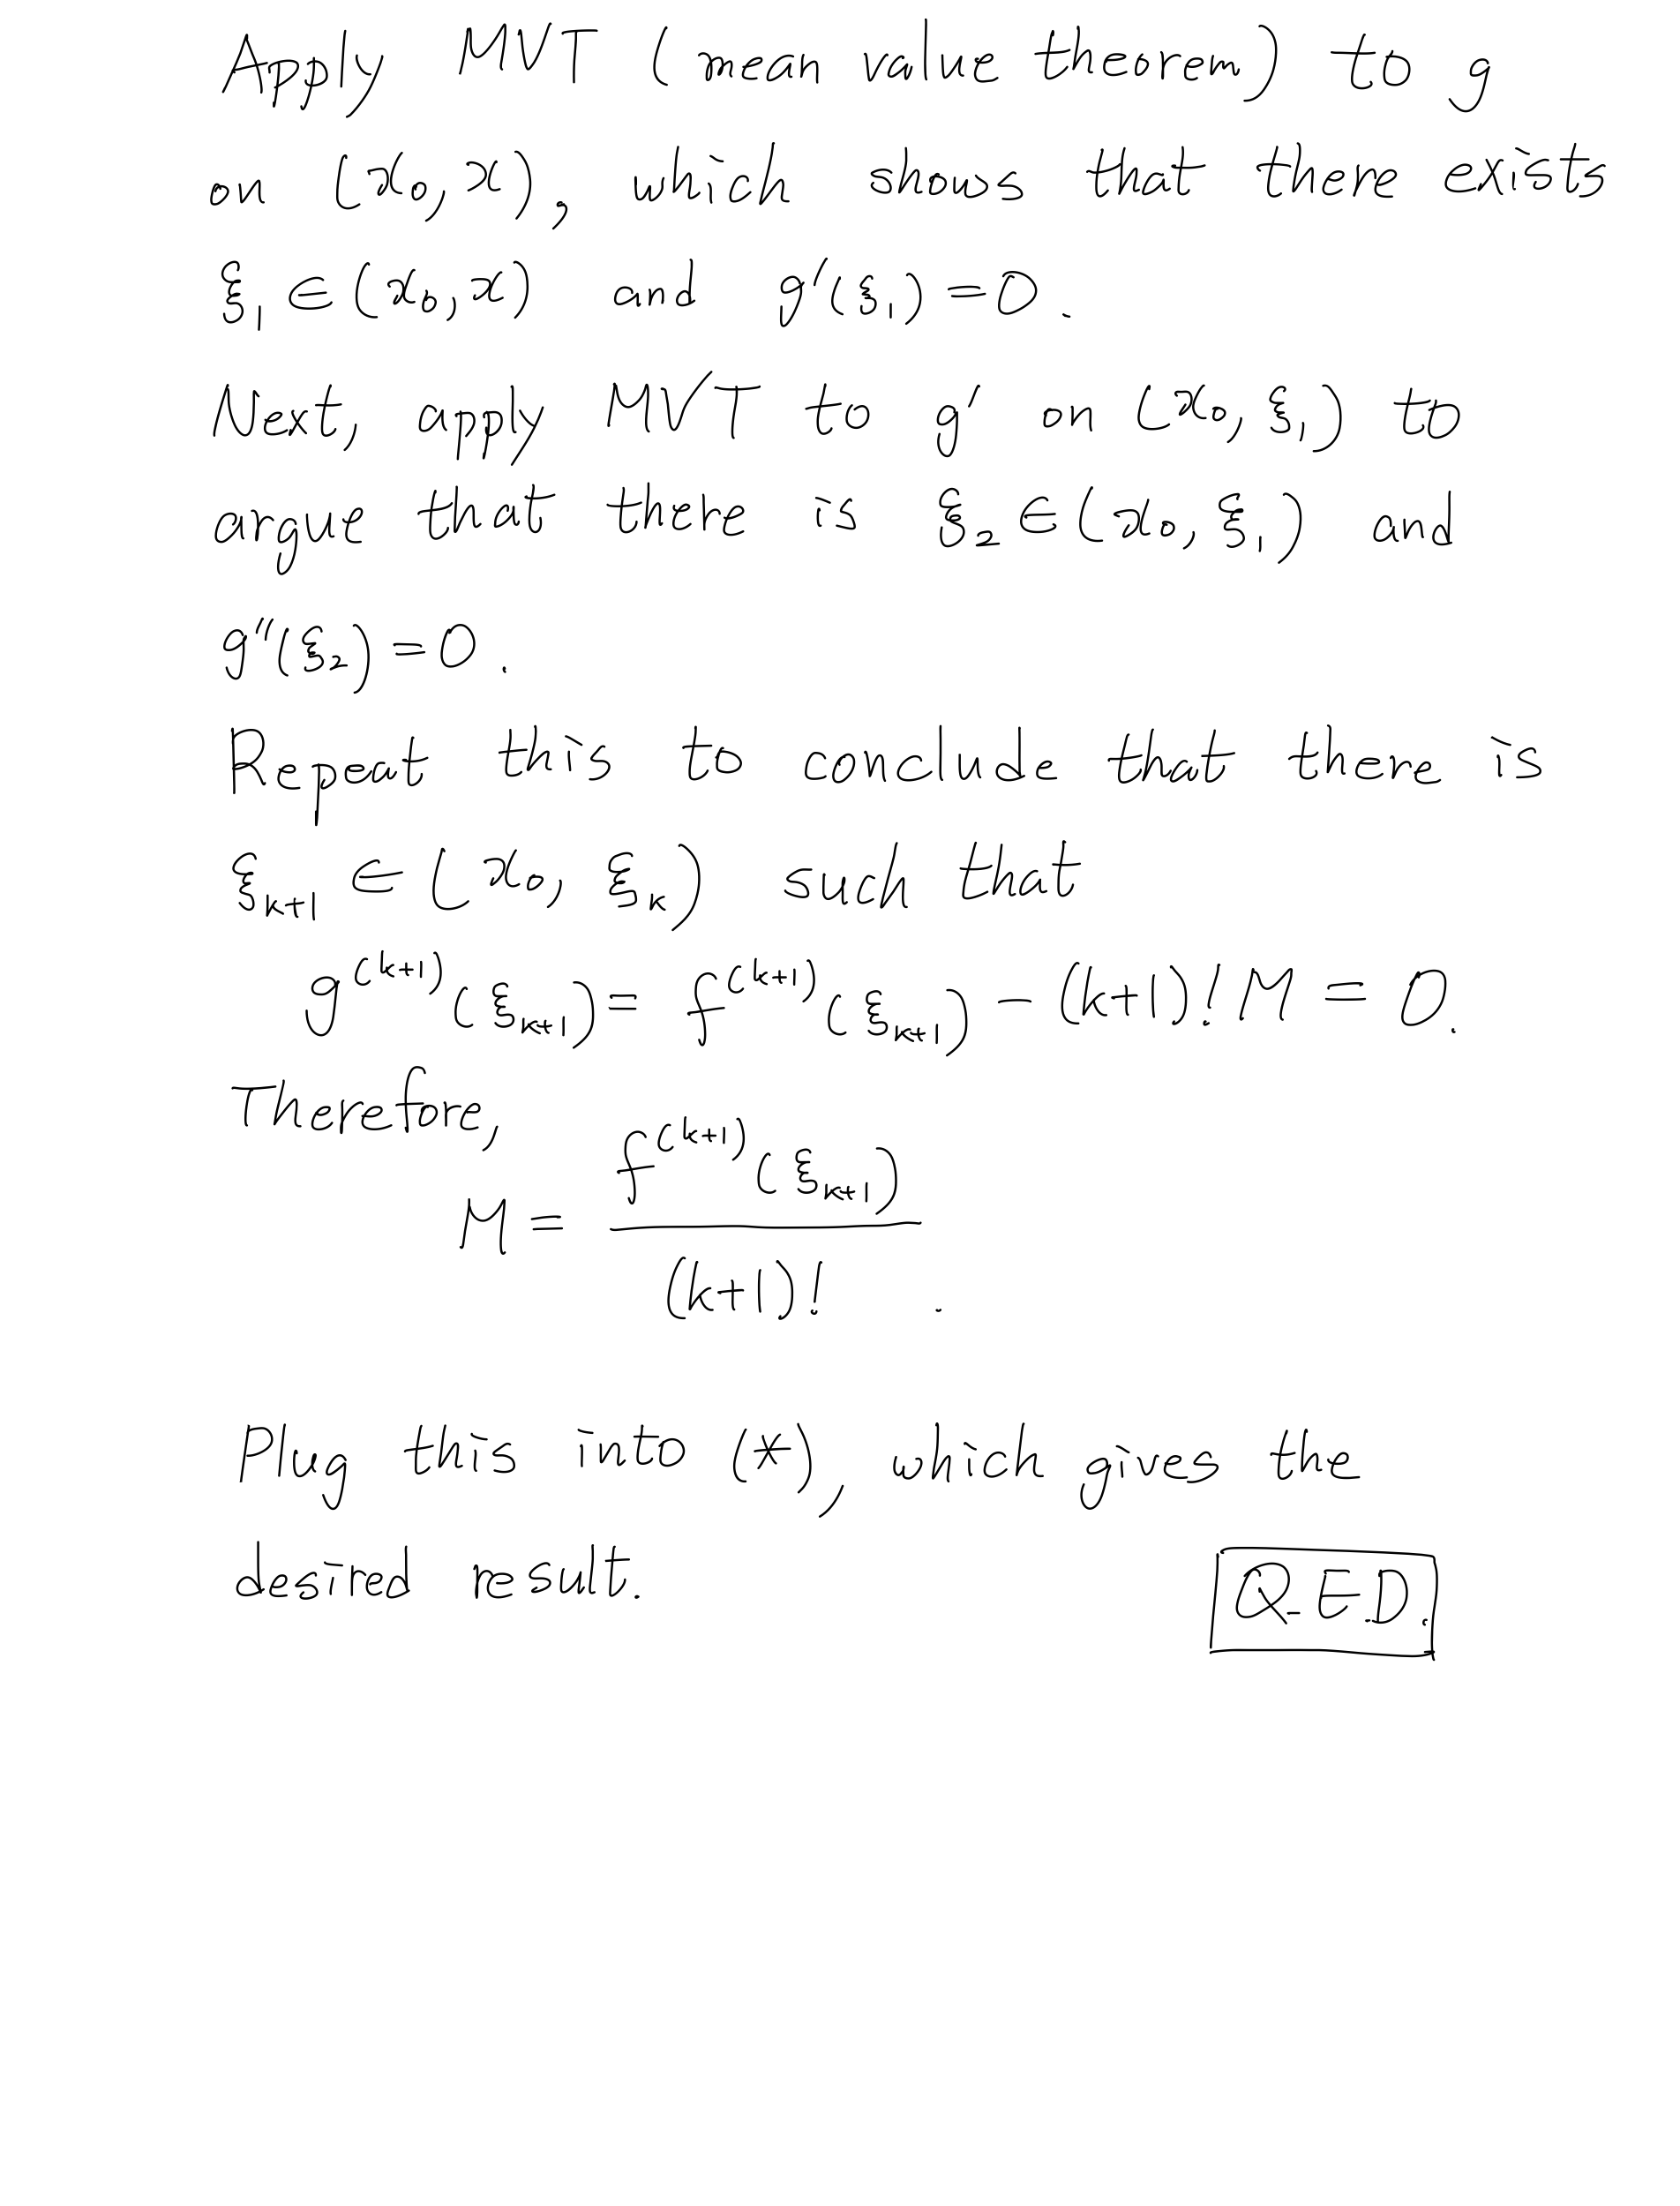 Apply MVT (mean value theorem) to g
on (x₀, x), which shows that there exists
ξ₁ ∈ (x₀, x) and g′(ξ₁) = 0.
Next, apply MVT to g′ on (x₀, ξ₁) to
argue that there is ξ₂ ∈ (x₀, ξ₁) and
g″(ξ₂) = 0.
Repeat this to conclude that there is
ξₖ₊₁ ∈ (x₀, ξₖ) such that
g⁽ᵏ⁺¹⁾(ξₖ₊₁) = f⁽ᵏ⁺¹⁾(ξₖ₊₁) − (k+1)! M = 0.
Therefore,
M = f⁽ᵏ⁺¹⁾(ξₖ₊₁) / (k+1)! .
Plug this into (*), which gives the
desired result.
Q.E.D.